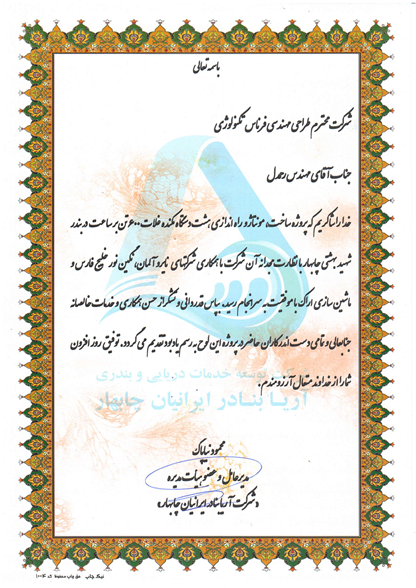 باسمه تعالی
شرکت محترم طراحی مهندسی فرناس تکنولوژی
جناب آقای مهندس رحمدل
خدا را شاکریم که پروژه ساخت، مونتاژ و راه اندازی هشت دستگاه مکنده غلات ۶۰۰ تن بر ساعت در بندر
شهید بهشتی چابهار با نظارت مجدانه آن شرکت با همکاری شرکتهای نایرو آلمان، نگین نور خلیج فارس و
ماشین سازی اراک با موفقیت به سرانجام رسید. بپاس قدردانی و تشکر از حسن همکاری و خدمات خالصانه
جنابعالی و تمامی دست اندرکاران حاضر در پروژه این لوح به رسم یادبود تقدیم می گردد. توفیق روز افزون
شما را از خداوند متعال آرزومندم.
توسعه خدمات دریایی و بندری
آریا بنادر ایرانیان چابهار
محمود
مدیرعامل و عضو هیات مدیره
«شرکت آریا بنادر ایرانیان چابهار»